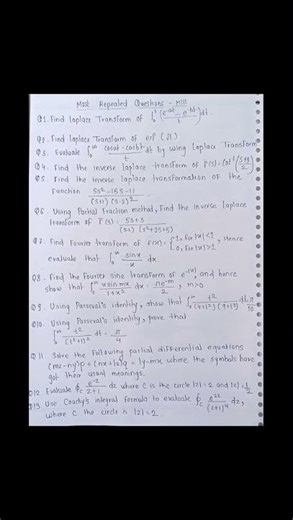 Most Repeated Questions - M3
Q1. Find Laplace Transform of ∫₀ᵗ (e^-at - e^-bt / t) dt.
Q2. Find Laplace Transform of erf (√t)
Q3. Evaluate ∫₀^∞ cosat - cosbt / t dt by using Laplace Transform
Q4. Find the inverse Laplace transform of F(s) = cot⁻¹ (s+3 / 2)
Q5. Find the inverse Laplace transformation of the
function 5s² - 15s - 11 / (s+1) (s-2)²
Q6. Using Partial Fraction method, Find the inverse Laplace
transform of F(s) = 5s+3 / (s-1) (s²+2s+5)
Q7. Find Fourier transform of F(x) = { 1, for |x|<1 0, for |x|>1 , Hence
evaluate that ∫₀^∞ sinx / x dx.
Q8. Find the Fourier sine transform of e^-|x|, and hence
show that ∫₀^∞ x sin mx / 1+x² dx = πe^-m / 2, m>0
Q9. Using Parseval's identity, show that ∫₀^∞ t² / (t²+4) (t²+9) dt = π/10
Q10. Using Parseval's identity, prove that
∫₀^∞ t² / (t²+1)² dt = π/4
Q11 Solve the following partial differential equations
(mz-ny)p + (nx-lz)q = ly-mx where the symbols have
got their usual meanings.
Q12 Evaluate ∮c e^-z / z+1 dz where C is the circle |z|=2 and |z|=1/2
Q13 Use Cauchy's integral formula to evaluate ∮c e^2z / (z+1)⁴ dz,
where C the circle is |z|=2.